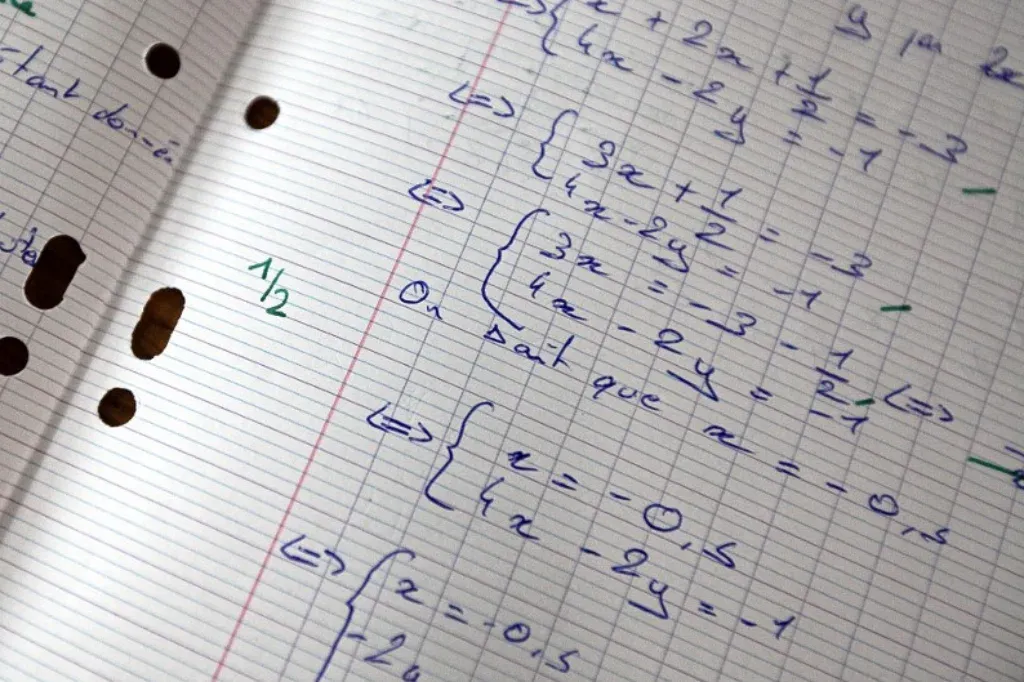 tant donné
1/2
y par 2x
<=> { x + 2x + 1/2 = -3
4x - 2y = -1
<=> { 3x + 1/2 = -3
4x - 2y = -1
<=> { 3x = -3 - 1/2 <=>
4x - 2y = -1
On sait que x = -0,5
<=> { x = -0,5
4x - 2y = -1
<=> { x = -0,5
-2y